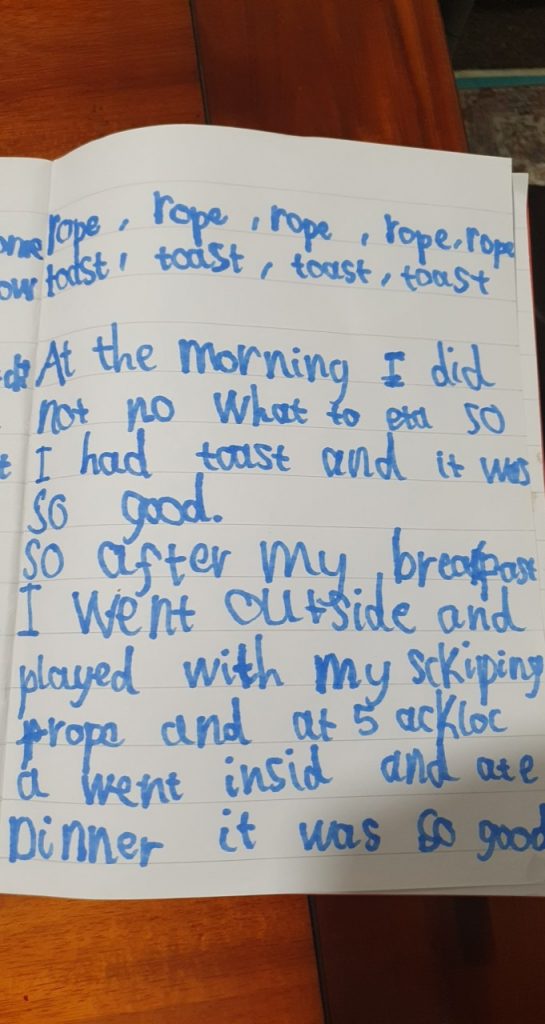 ome rope, rope, rope, rope, rope
ow toast, toast, toast, toast
At the morning I did
not no what to eta so
t I had toast and it was
so good.
so after my breafast
I went outside and
played with my sckiping
rope and at 5 ackloc
a went insid and ate
Dinner it was so good